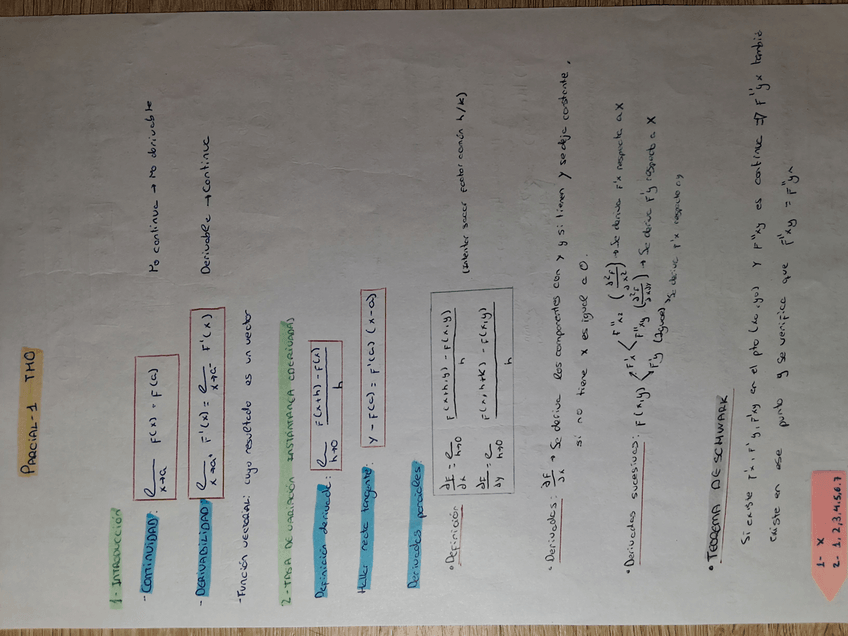 PARCIAL-1 TMO
1- INTRODUCCIÓN
- CONTINUIDAD: lim x→a F(x) = F(a) No continua → No derivable
- DERIVABILIDAD: lim x→a+ F'(x) = lim x→a- F'(x) Derivable → Continua
- Función vectorial: cuyo resultado es un vector
2- TASA DE VARIACIÓN INSTANTÁNEA (DERIVADA)
Definición derivada: lim h→0 F(x+h) - F(x) / h
Hallar recta tangente: Y - F(a) = F'(a) (x-a)
Derivadas parciales:
• Definición: ∂F/∂x = lim h→0 F(x+h,y) - F(x,y) / h (intentar sacar factor común h/k)
∂F/∂y = lim h→0 F(x,h+k) - F(x,y) / h
• Derivadas: ∂F/∂x → Se deriva las componentes con x y si tienen y se deja constante,
si no tiene x es igual a 0.
• Derivadas sucesivas: F(x,y) F'x F''x² (∂²F/∂x²) → Se deriva F'x respecto a x
F''xy → Se deriva F'y respecto a x
F'y (Igual) Se deriva F'x respecto a y
• TEOREMA DE SCHWARK
Si existe F'x, F'y, F'xy en el pto (x0,y0) y F''xy es continua ⇒ F''yx tambié
existe en ese punto y se verifica que F''xy = F''yx
1- x
2- 1,2,3,4,5,6,7